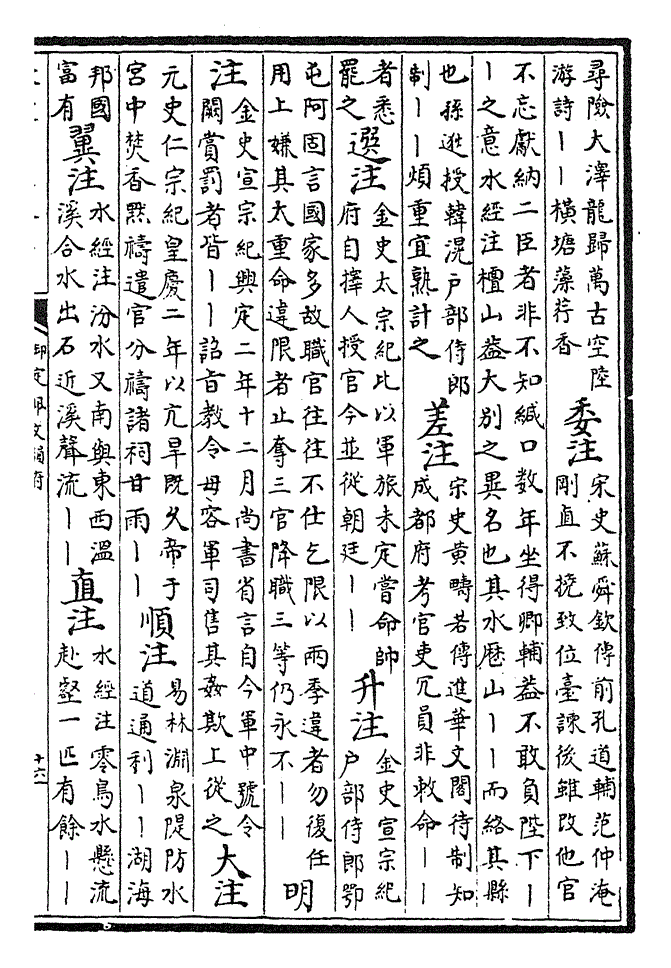 尋險大澤龍歸萬古空陸
游詩丨丨橫塘藻荇香
委注
宋史蘇舜欽傳前孔道輔范仲淹
剛直不撓致位臺諫後雖改他官
不忘獻納二臣者非不知緘口数年坐得卿輔葢不敢負陛下丨
丨之意水經注檀山葢大别之異名也其水歴山丨丨而絡其縣
也孫逖授韓滉户部侍郎
制丨丨煩重宜熟計之
差注
宋史黄疇若傳進華文閣待制知
成都府考官吏冗員非敕命丨丨
者悉
罷之
選注
金史太宗紀比以軍旅未定嘗命帥
府自擇人授官今並從朝廷丨丨
升注
金史宣宗紀
户部侍郎鄂
屯阿固言國家多故職官往往不仕乞限以兩季違者勿復任
用上嫌其太重命違限者止奪三官降職三等仍永不丨丨
明
注
金史宣宗紀興定二年十二月尚書省言自今軍中號令
闕賞罰者皆丨丨詔旨教令毋容軍司售其姦欺上從之
大注
元史仁宗紀皇慶二年以亢旱既久帝于
宫中焚香黙禱遣官分禱諸祠甘雨丨丨
順注
易林淵泉隄防水
道通利丨丨湖海
邦國
富有
翼注
水經注汾水又南與東西溫
溪合水出石近溪聲流丨丨
直注
水經注零鳥水懸流
赴壑一匹有餘丨丨
御定佩文韻府
十六